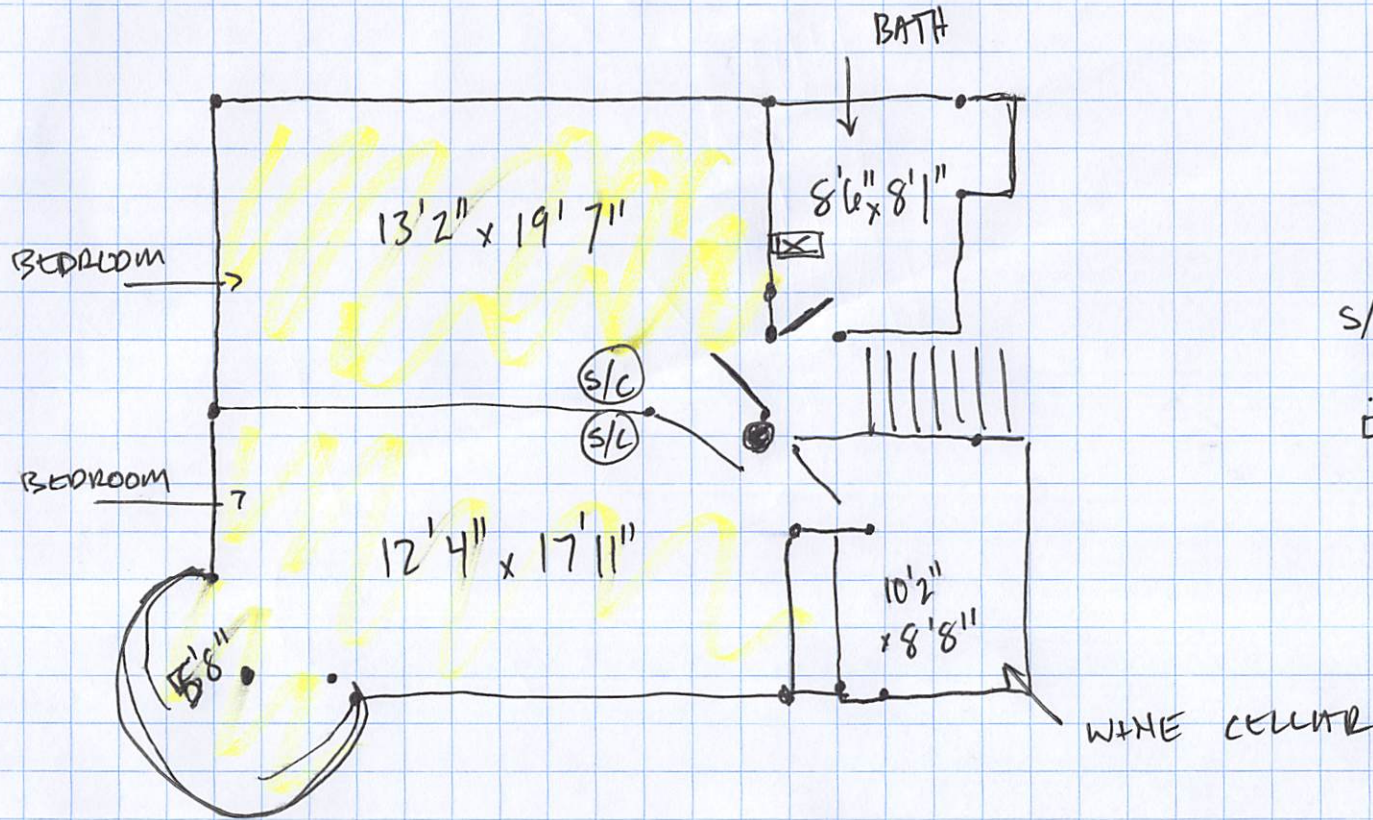 BATH
8'6" x 8'1"
13'2" x 19'7"
BEDROOM
S/
S/C
S/C
BEDROOM
12'4" x 17'11"
10'2"
x 8'8"
5'8"
WINE CELLAR